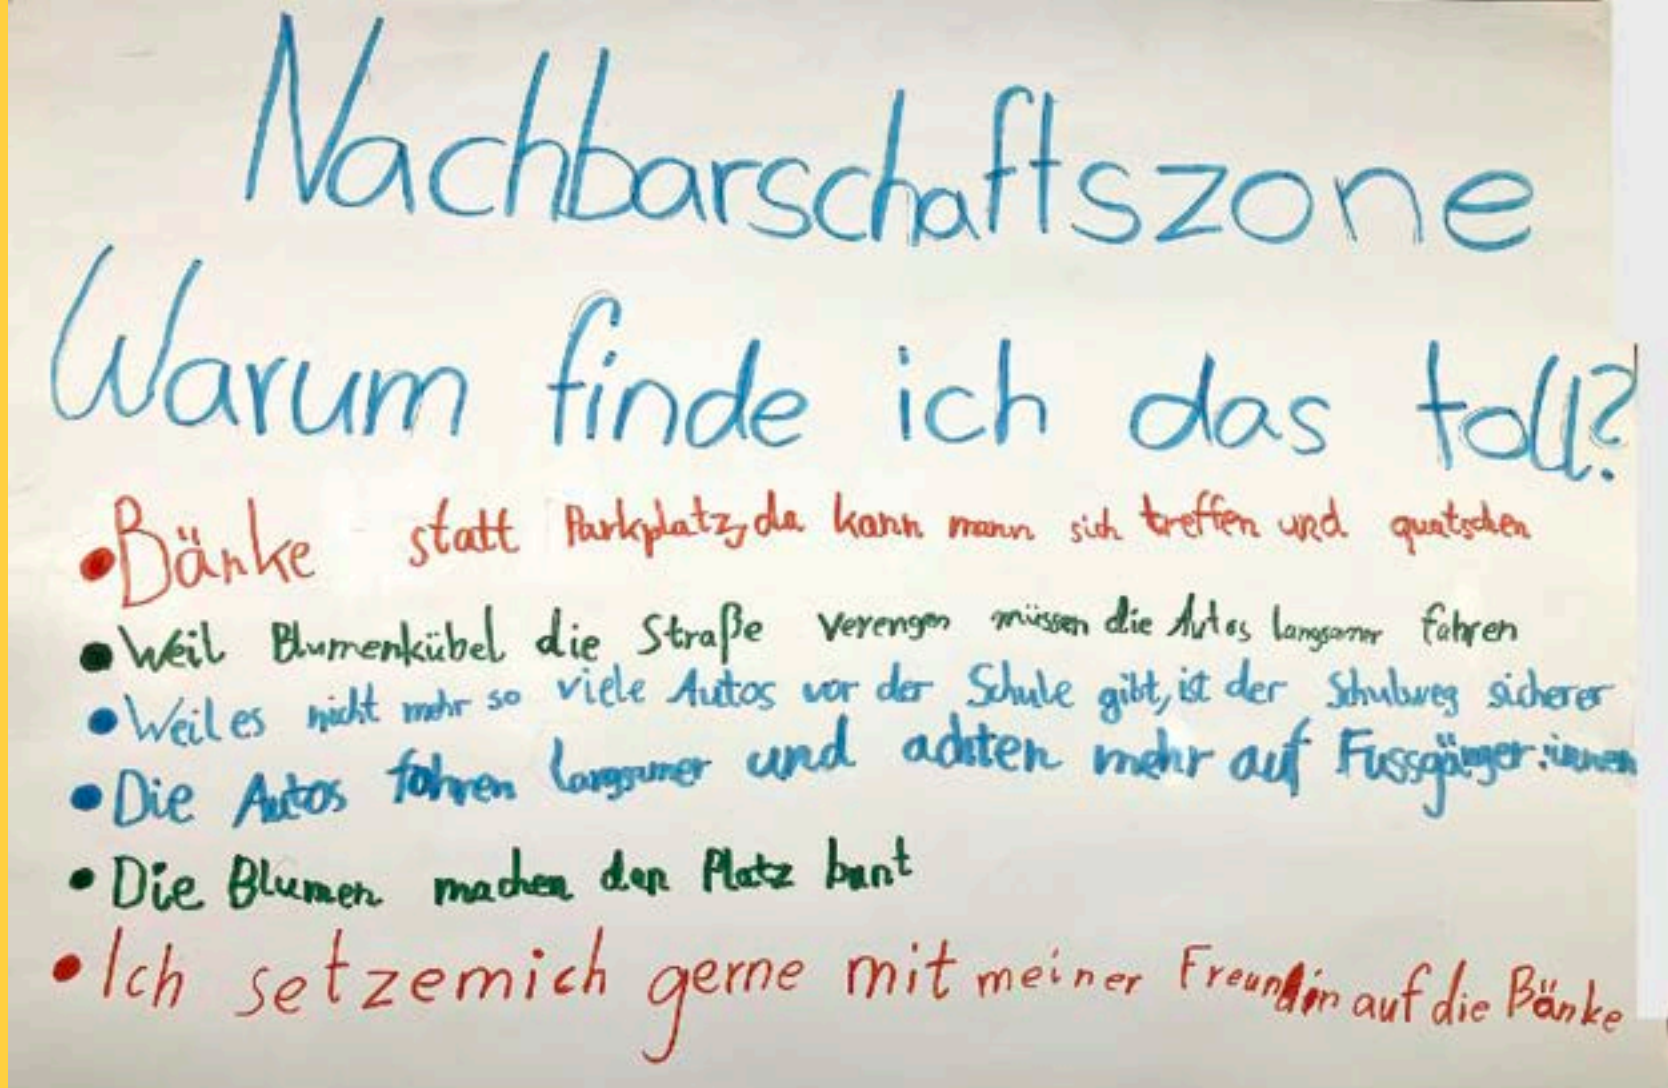 Nachbarschaftszone
Warum finde ich das toll?
• Bänke statt Parkplatz, da kann mann sich treffen und quatschen
• Weil Blumenkübel die Straße verengen müssen die Autos langsamer fahren
• Weil es nicht mehr so viele Autos vor der Schule gibt, ist der Schulweg sicherer
• Die Autos fahren langsamer und achten mehr auf Fussgänger:innen
• Die Blumen machen den Platz bunt
• Ich setzemich gerne mit meiner Freundin auf die Bänke